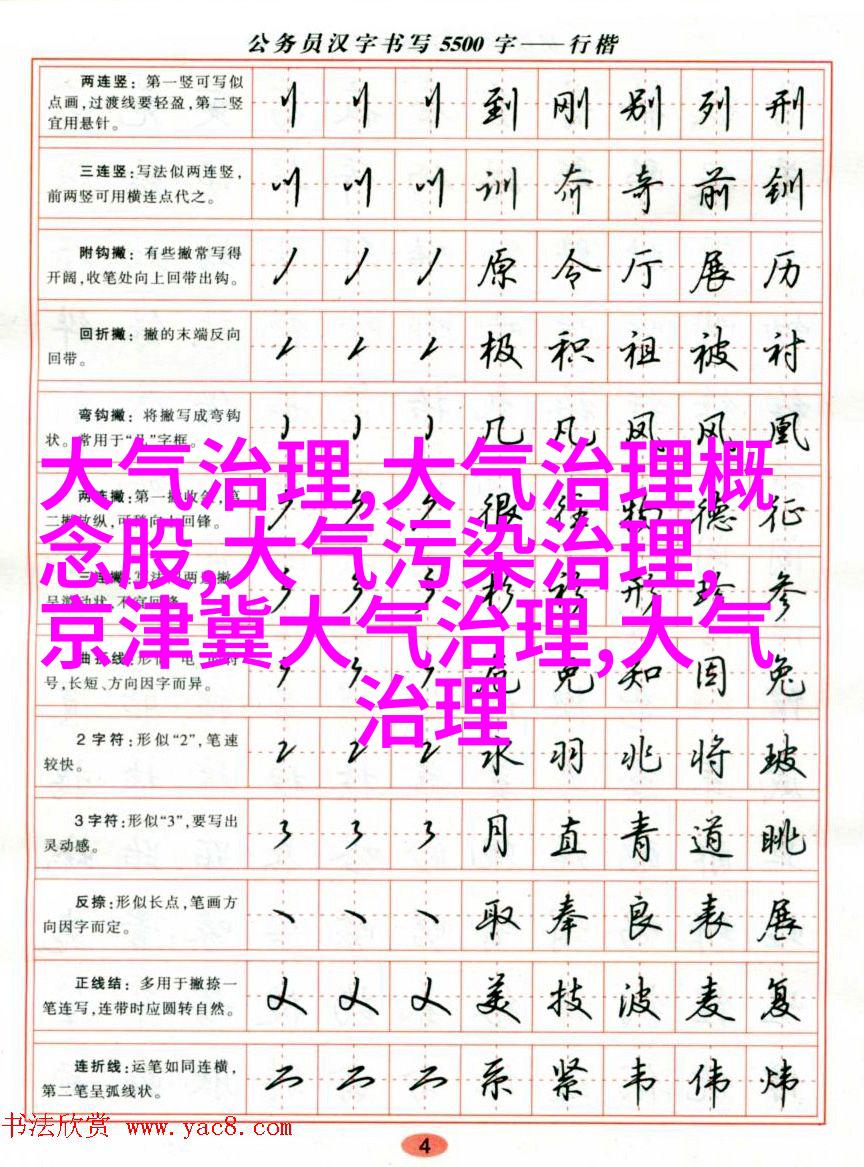 公务员汉字书写5500字——行楷
两连竖：第一竖可写似
点画,过渡线要轻盈,第二竖
宜用悬针。
到 刚 别 列 刑
三连竖:写法似两连竖,
前两竖可用横连点代之。
训 奔 奇 前 钏
附钩撇：有些撇常写得
开阔,收笔处向上回带出钩。
原 令 厅 展 历
回折撇：撇的末端反向
回带。
极 积 祖 被 衬
弯钩撇：将撇写成弯钩
状。常用于“几”字框。
几 凡 凤 风 凰
大气治理,大气治理概
念股,大气污染治理,
京津冀大气治理,大气
治理
很 往 物 德 征
杉 衫 形 珍 参
号,长短、方向因字而异。
免 知 因 兔
2字符:形似“2”,笔速
较快。
水 羽 兆 将 玻
3字符:形似“3”,要写出
灵动感。
月 直 青 道 眺
反捺:形似长点,笔画方
向因字而定。
取 奉 良 表 展
正线结：多用于撇捺一
笔连写,连带时应圆转自然。
美 技 波 麦 复
连折线:运笔如同连横,
第二笔呈弧线状。
系 紧 韦 伟 炜
书法欣赏 www.yac8.com
4